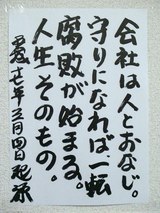 会社は人とおなじ。
守りになれば、一転
腐敗が始まる。
人生そのもの。
年三月四日